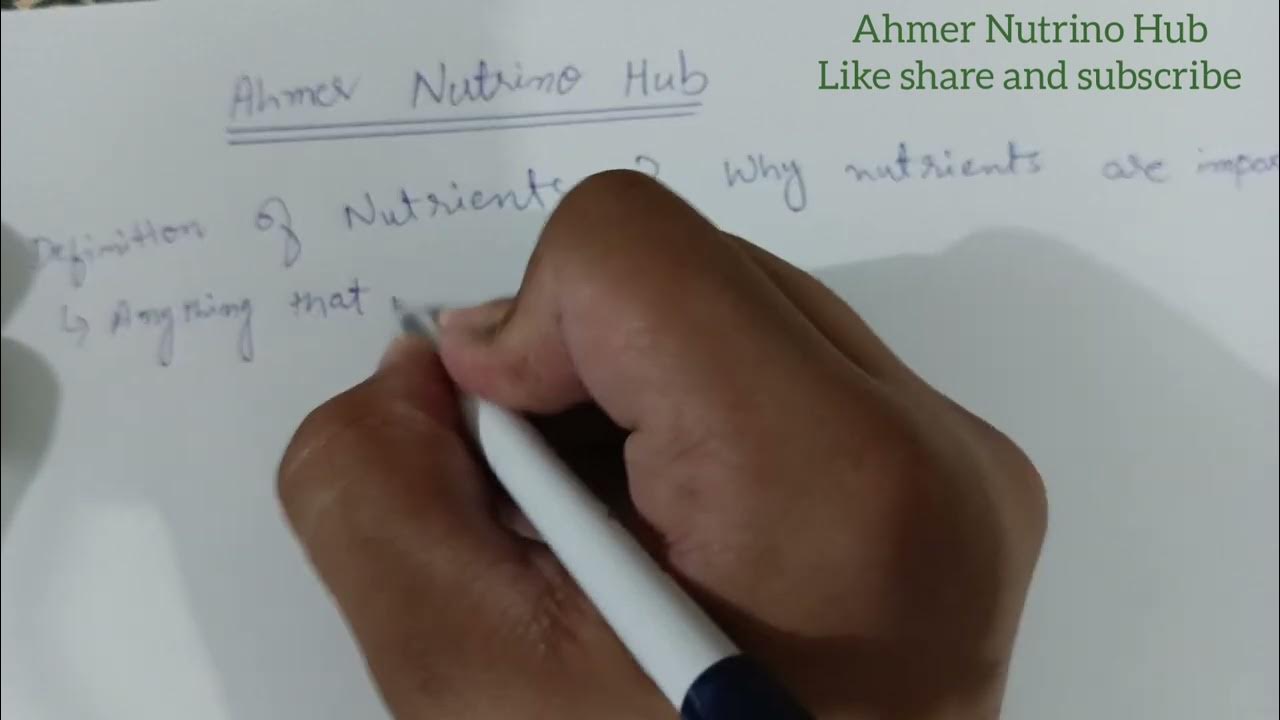 Ahmer Nutrino Hub
Like share and subscribe
Ahmer Nutrino Hub
Definition of Nutrients ? Why nutrients are impo
↳ Anything that